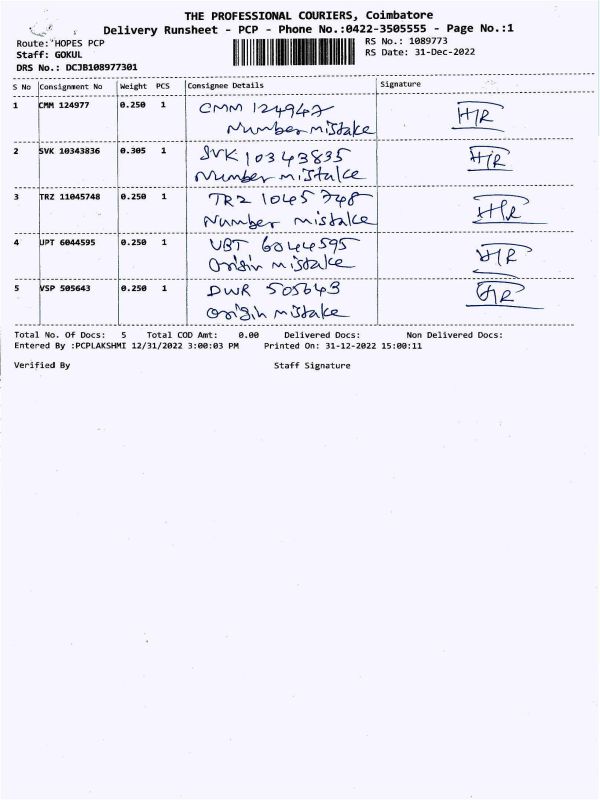 THE PROFESSIONAL COURIERS, Coimbatore
Delivery Runsheet - PCP - Phone No.:0422-3505555 - Page No.:1
Route: HOPES PCP
RS No.: 1089773
Staff: GOKUL
RS Date: 31-Dec-2022
DRS No.: DCJB108977301
S No Consignment No Weight PCS Consignee Details Signature
1 CMM 124977 0.250 1 CMM 124947 HR
Number mistake
2 SVK 10343836 0.305 1 SVK 10343835 HR
Number mistake
3 TRZ 11045748 0.250 1 TRZ 1045748 HR
Number mistake
4 UPT 6044595 0.250 1 UBT 6044595 HR
Origin mistake
5 VSP 505643 0.250 1 DWR 505643 HR
Origin mistake
Total No. Of Docs: 5 Total COD Amt: 0.00 Delivered Docs: Non Delivered Docs:
Entered By :PCPLAKSHMI 12/31/2022 3:00:03 PM Printed On: 31-12-2022 15:00:11
Verified By Staff Signature